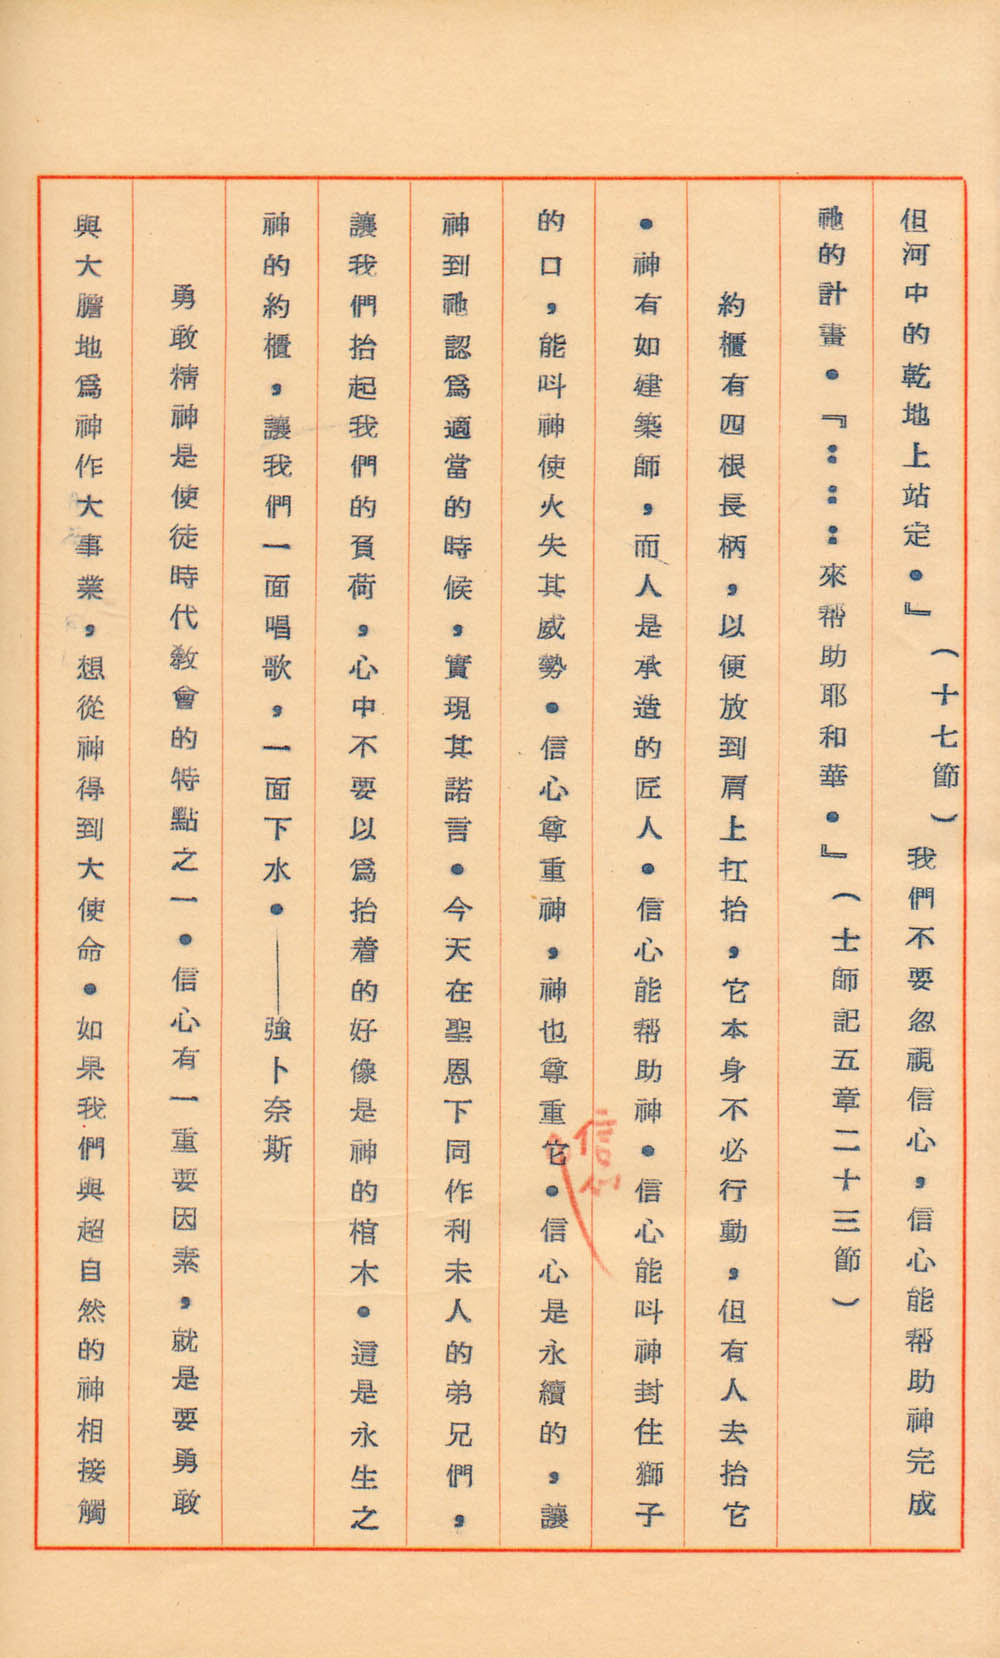 但河中的乾地上站定•』（十七節）我們不要忽視信心，信心能幫助神完成
祂的計畫•『：：：來幫助耶和華•』（士師記五章二十三節）
約櫃有四根長柄，以便放到肩上扛抬，它本身不必行動，但有人去抬它
•神有如建築師，而人是承造的匠人•信心能幫助神•信心能叫神封住獅子
的口，能叫神使火失其威勢•信心尊重神，神也尊重它•信心是永續的，讓
信心
神到祂認為適當的時候，實現其諾言•今天在聖恩下同作利未人的弟兄們，
讓我們抬起我們的負荷，心中不要以為抬着的好像是神的棺木•這是永生之
神的約櫃，讓我們一面唱歌，一面下水•——強卜奈斯
勇敢精神是使徒時代教會的特點之一•信心有一重要因素，就是要勇敢
與大膽地爲神作大事業，想從神得到大使命•如果我們與超自然的神相接觸